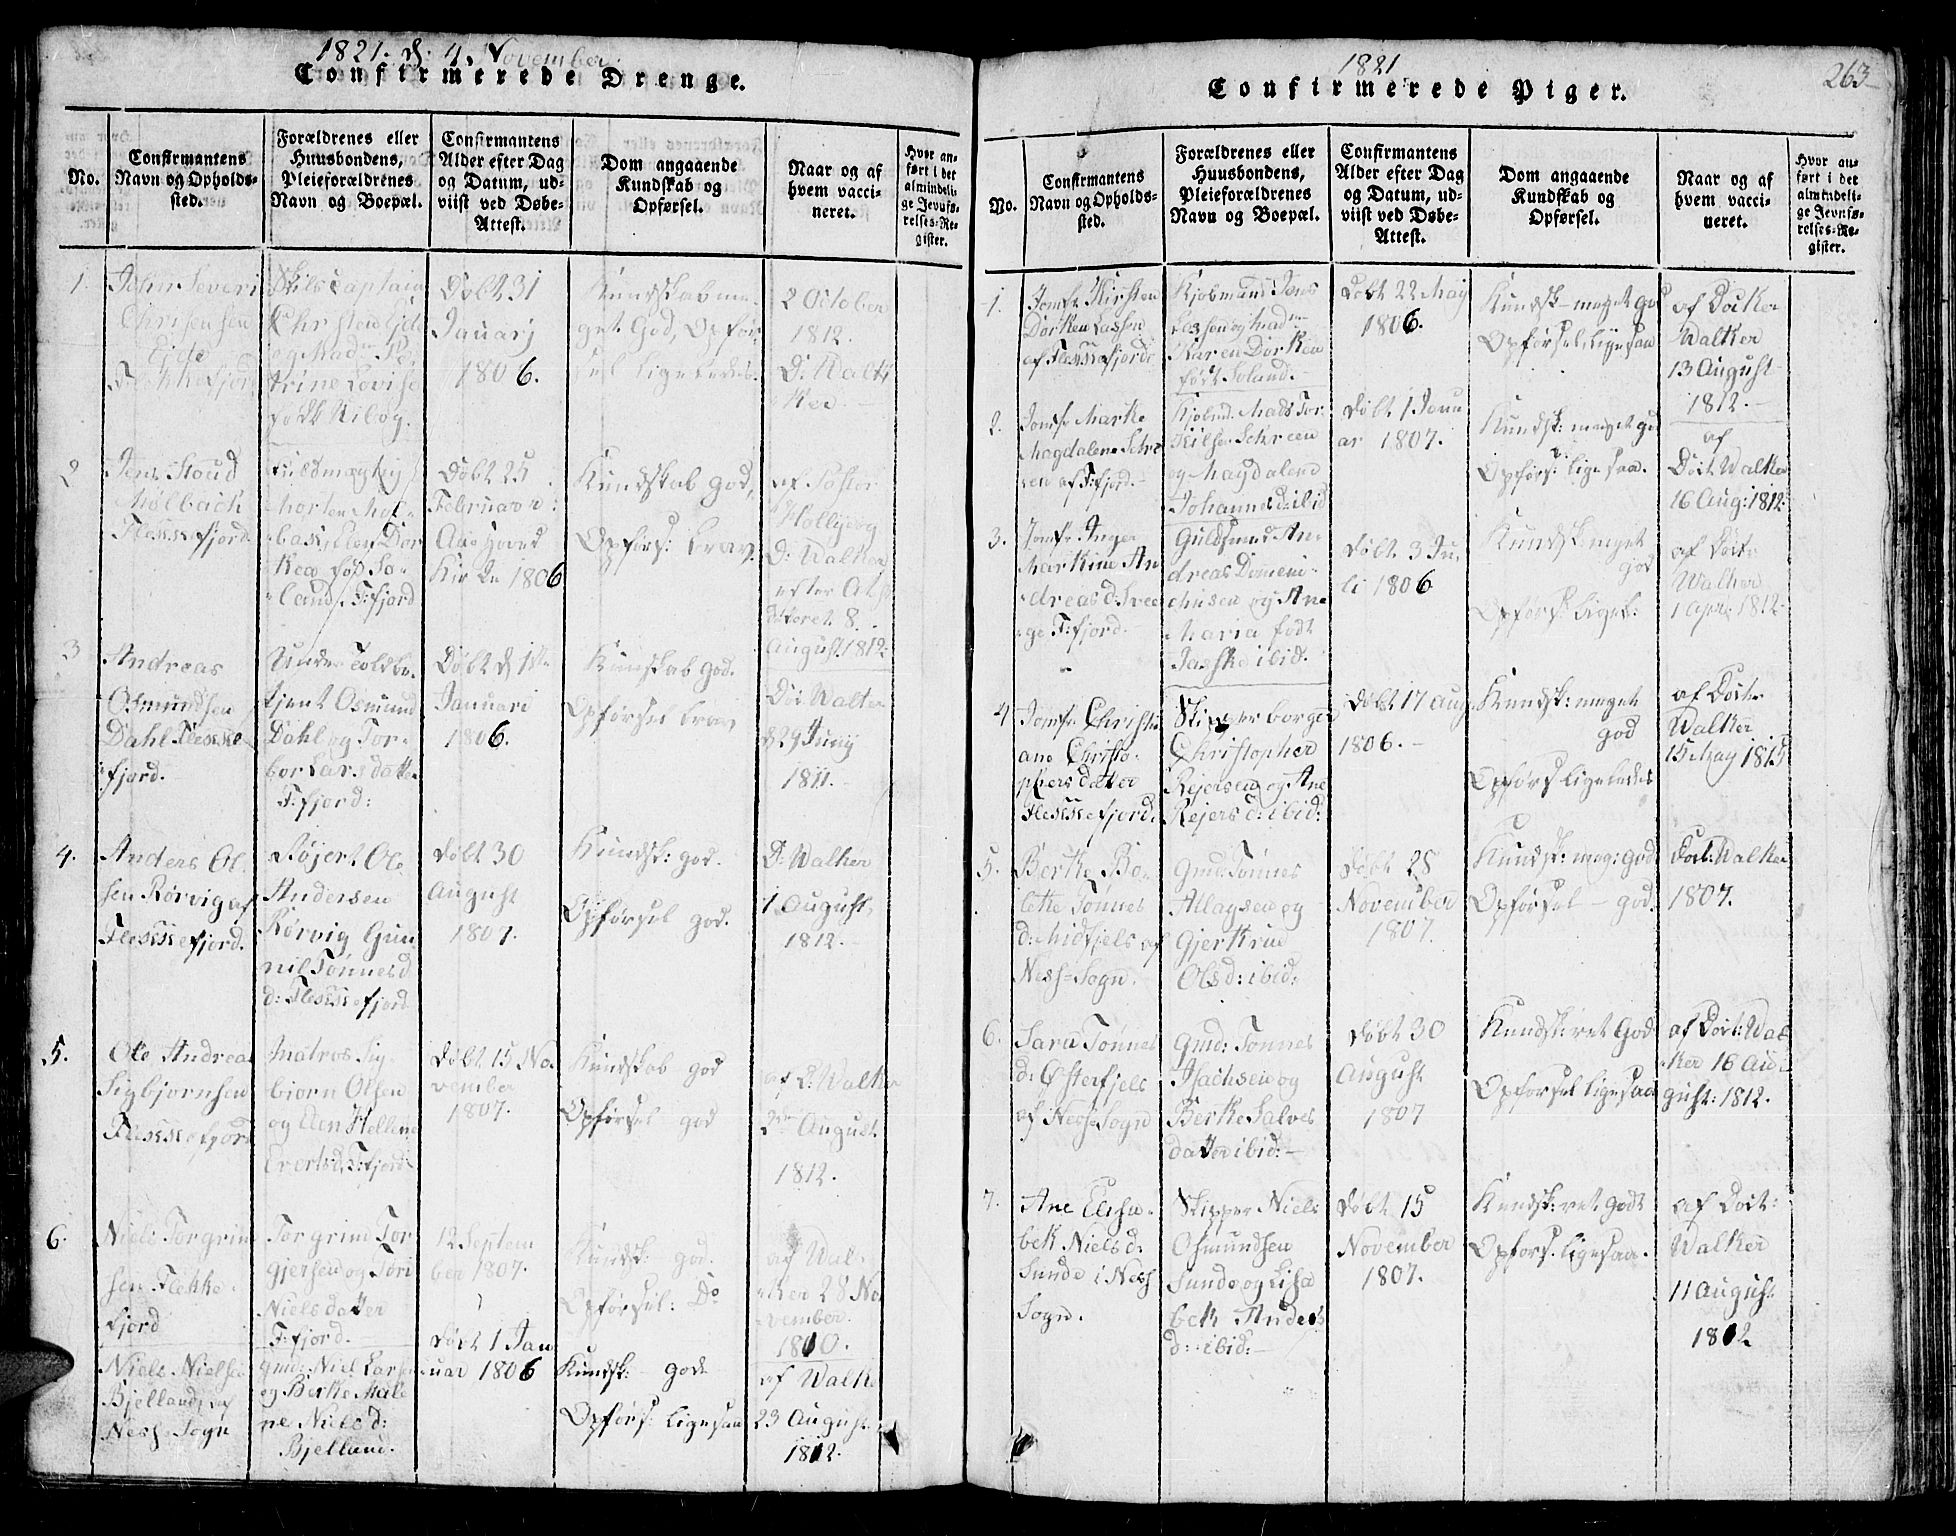 1821. d: 4. November.
Confirmerede Drenge.
No.
Confirmantens
Navn og Opholds-
sted.
Forældrenes eller
Huusbondens,
Pleieforældrenes
Navn og Boepæl.
Confirmantens
Alder efter Dag
og Datum, ud-
viist ved Døbe-
Attest.
Dom angaaende
Kundskab og
Opførsel.
Naar og af
hvem vacci-
neret.
Hvor an-
ført i det
almindeli-
ge Jevnfø-
relses-Re-
gister.
1.
John Severi
Chrisensen
Eide
Flekkefjord
Skibscaptain
Christen Eide
og Madm Pe-
trine Lovise
født Kiløy.
Døbt 31
Januarj
1806.
Kundskab me-
get God, Opfør
sel ligeledes.
2 October
1812.
D: Walk
ker
2
Jens Stoud
Mølbach
Flekkefjord
Fuldmægtig
Morten Møl-
bak, Ellen Dor
kea fød So-
land, F:fjord
Døbt 25
Februarr:
Aae Hoved
Kirke 1806
Kundskab god,
Opførs: brav.
af Pastor
Hollseog
D: Walker
efter At-
testeret 8.
August 1812.
3
Andreas
Osmundsen
Dahl Flekke
fjord.
Under Toldbe-
tjent Osmund
Dahl og Tor-
bor Larsdatter
F:fjord:
Døbt d 1ste
Januari
1806.
Kundskab god.
Opførsel brav
Doi Walter
d 29 Junij
1811.
4.
Anders Ol-
sen Rørvig af
Flekkefjord.
Fløjert Ole
Andersen
Rørvig Gun
nil Tønnesd
d: Flekkefjord
Døbt 30
August
1807.
Kundsk: god.
Opførsel god.
D: Walker
1 August,
1812.
5.
Ole Andreas
Sigbjørnsen
Flekkefjord
Matros Sig-
biørn Olsen
og Elen Hellene
Evertsd, F:fjord
Døbt 15 No-
vember
1807.
Kundskab god
Opførsel god
af D: Walker
2den August
1812.
6.
Niels Torgrim
sen Flekke-
fjord
Torgrim Tor
gjersen og Tori
Nielsdatter
F:fjord.
12 Septem
ber 1807.
Kundsk: god.
Opførsel: Do
af Wal-
ker 28 No-
vember.
1810.
Niels Nielsen
Bjelland, af
Ness Sogn
Gmd: Niel Larsen
og Berte Male
ne Nielsd:
Bjelland.
Døbt 1 Jan
uar 1806
Kundsk: gode
Opførs: ligesaa
af Walke
23 August
1812.
1821
263
Confirmerede Piger.
No.
Confirmantens
Navn og Opholds-
sted.
Forældrenes eller
Huusbondens,
Pleieforældrenes
Navn og Boepæl.
Confirmantens
Alder efter Dag
og Datum, ud-
viist ved Døbe-
Attest.
Dom angaaende
Kundskab og
Opførsel.
Naar og af
hvem vacci-
neret.
Hvor an-
ført i det
almindeli-
ge Jevnfø-
relses-Re-
gister.
1.
Jomfr Kirsten
Dorken Lassen
af Flekkefjord
Kjøbmand Jens
Lassen og Madme
Karen Dorken
født Soland.
Døbt 22 May
1806.
Kundsk– meget god
Opførsel, ligesaa
af Docker
Walker
13 August
1812.
2.
Jomfr Marte
Magdalene Schre
en af F:fjord.
Kjøbmd: Mads Tor-
kilsen Schreen
og Magdalene
Johannesd: ibid
Døbt 1 Janu
ar 1807.
Kundsk: meget god
Opførs: ligesaa.
af
Doct. Walker
16 Aug: 1812.
3.
Jomfr Inger
Martine An
dreasd: Svee
ge F:fjord.
Guldsmed An-
dreas Domeni-
chusen og Ane
Maria født
Jaske ibid.
Døbt 3 Ju-
li 1806
Kundsk: meget
god
Opførs: ligel:
af Doct
Walker
1 Apr: 1812.
4
Jomfr Christi
ane Christo-
phersdatter
Flekkefjord.
Skipperborger
Christopher
Rejersen og Ane
Rejersd: ibid:
Døbt 17 Aug
1806.
Kundsk: meget
god
Opførs ligeledes
af Doct
Walker
15 May 1815
5.
Berte Bo-
lette Tønnes
d: Midfjels af
Ness-Sogn.
Gmd: Tønnes
Atlaysen og
Gjertrud
Olsd: ibid:
Døbt 28
November
1807.
Kundsk: meg: god
Opførsel – god.
Doct: Walker
1807.
6.
Sara Tønnes
d: Østerfjels
af Ness Sogn
Gmd: Tonnes
Isachsen og
Berte Salves
datter ibid:
Døbt 30
August
1807
Kundsk: ret God
Opførsel ligesaa
af Doct: Wal
ker 16 Au-
gust: 1812.
7.
Ane Elisa-
bek Nielsd:
Sunde i Ness
Sogn.
Skipper Niels
Osmundsen
Sunde og Lisa
bek Anders
d: ibid:
Døbt 15
November
1807.
Kundsk: ret godt
Opførs. ligesaa.
af Doct:
Walker
11 August
1812